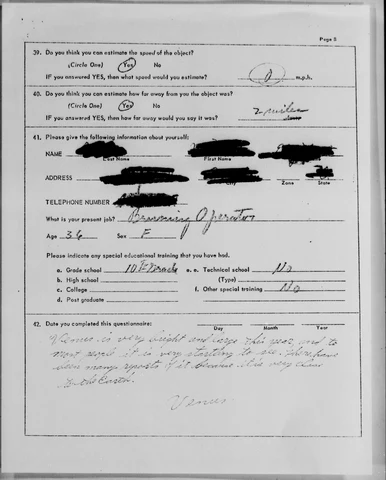 Page 8
39. Do you think you can estimate the speed of the object?
(Circle One) Yes No
IF you answered YES, then what speed would you estimate? 0 m.p.h.
40. Do you think you can estimate how far away from you the object was?
(Circle One) Yes No
IF you answered YES, then how far away would you say it was? 2 miles
41. Please give the following information about yourself:
NAME
Last Name First Name
ADDRESS
Street City Zone State
TELEPHONE NUMBER
What is your present job? Browning Operator
Age 36 Sex F
Please indicate any special educational training that you have had.
a. Grade school 10th Grade e. Technical school No
b. High school (Type)
c. College f. Other special training No
d. Post graduate
42. Date you completed this questionnaire:
Day Month Year
Venus is very bright and large this year and to
most people it is very startling to see. There have
been many reports of it because it is very close
to the Earth.
Venus